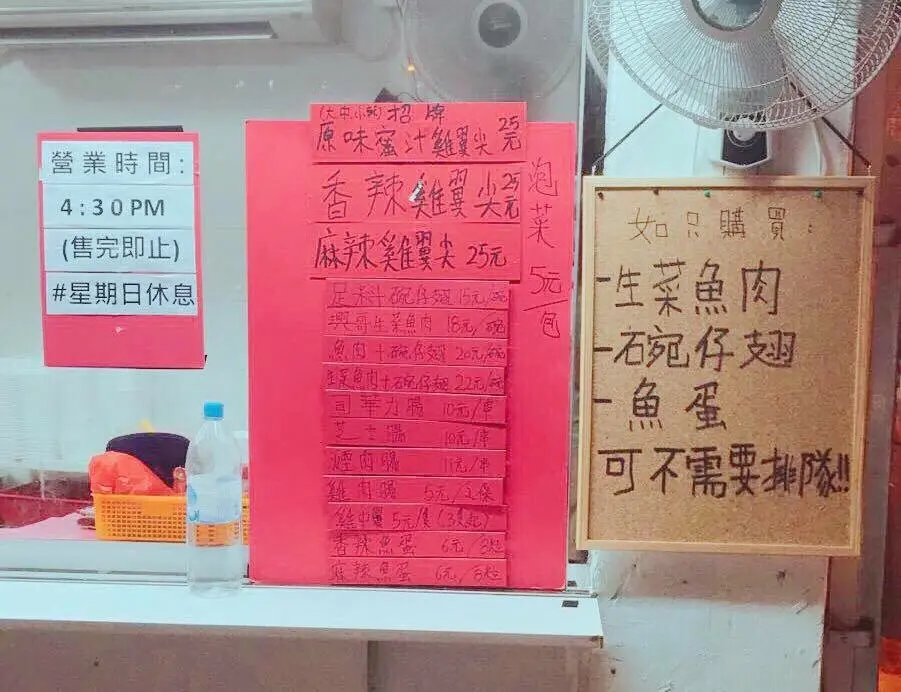 營業時間:
4:30PM
(售完即止)
#星期日休息
(大中小辣) 招牌
原味蜜汁雞翼尖 25元
香辣雞翼尖 25元
麻辣雞翼尖 25元
足料碗仔翅 15元/碗
生菜魚肉 18元/碗
魚肉+碗仔翅 20元/碗
生菜魚肉+碗仔翅 22元/碗
司華力腸 10元/串
芝士腸 10元/串
煙肉腸 11元/串
雞肉腸 5元/2條
雞中翼 5元/隻 (3隻起)
香辣魚蛋 6元/8粒
麻辣魚蛋 6元/8粒
泡菜 5元/包
如只購買:
-生菜魚肉
-碗仔翅
-魚蛋
可不需要排隊!!